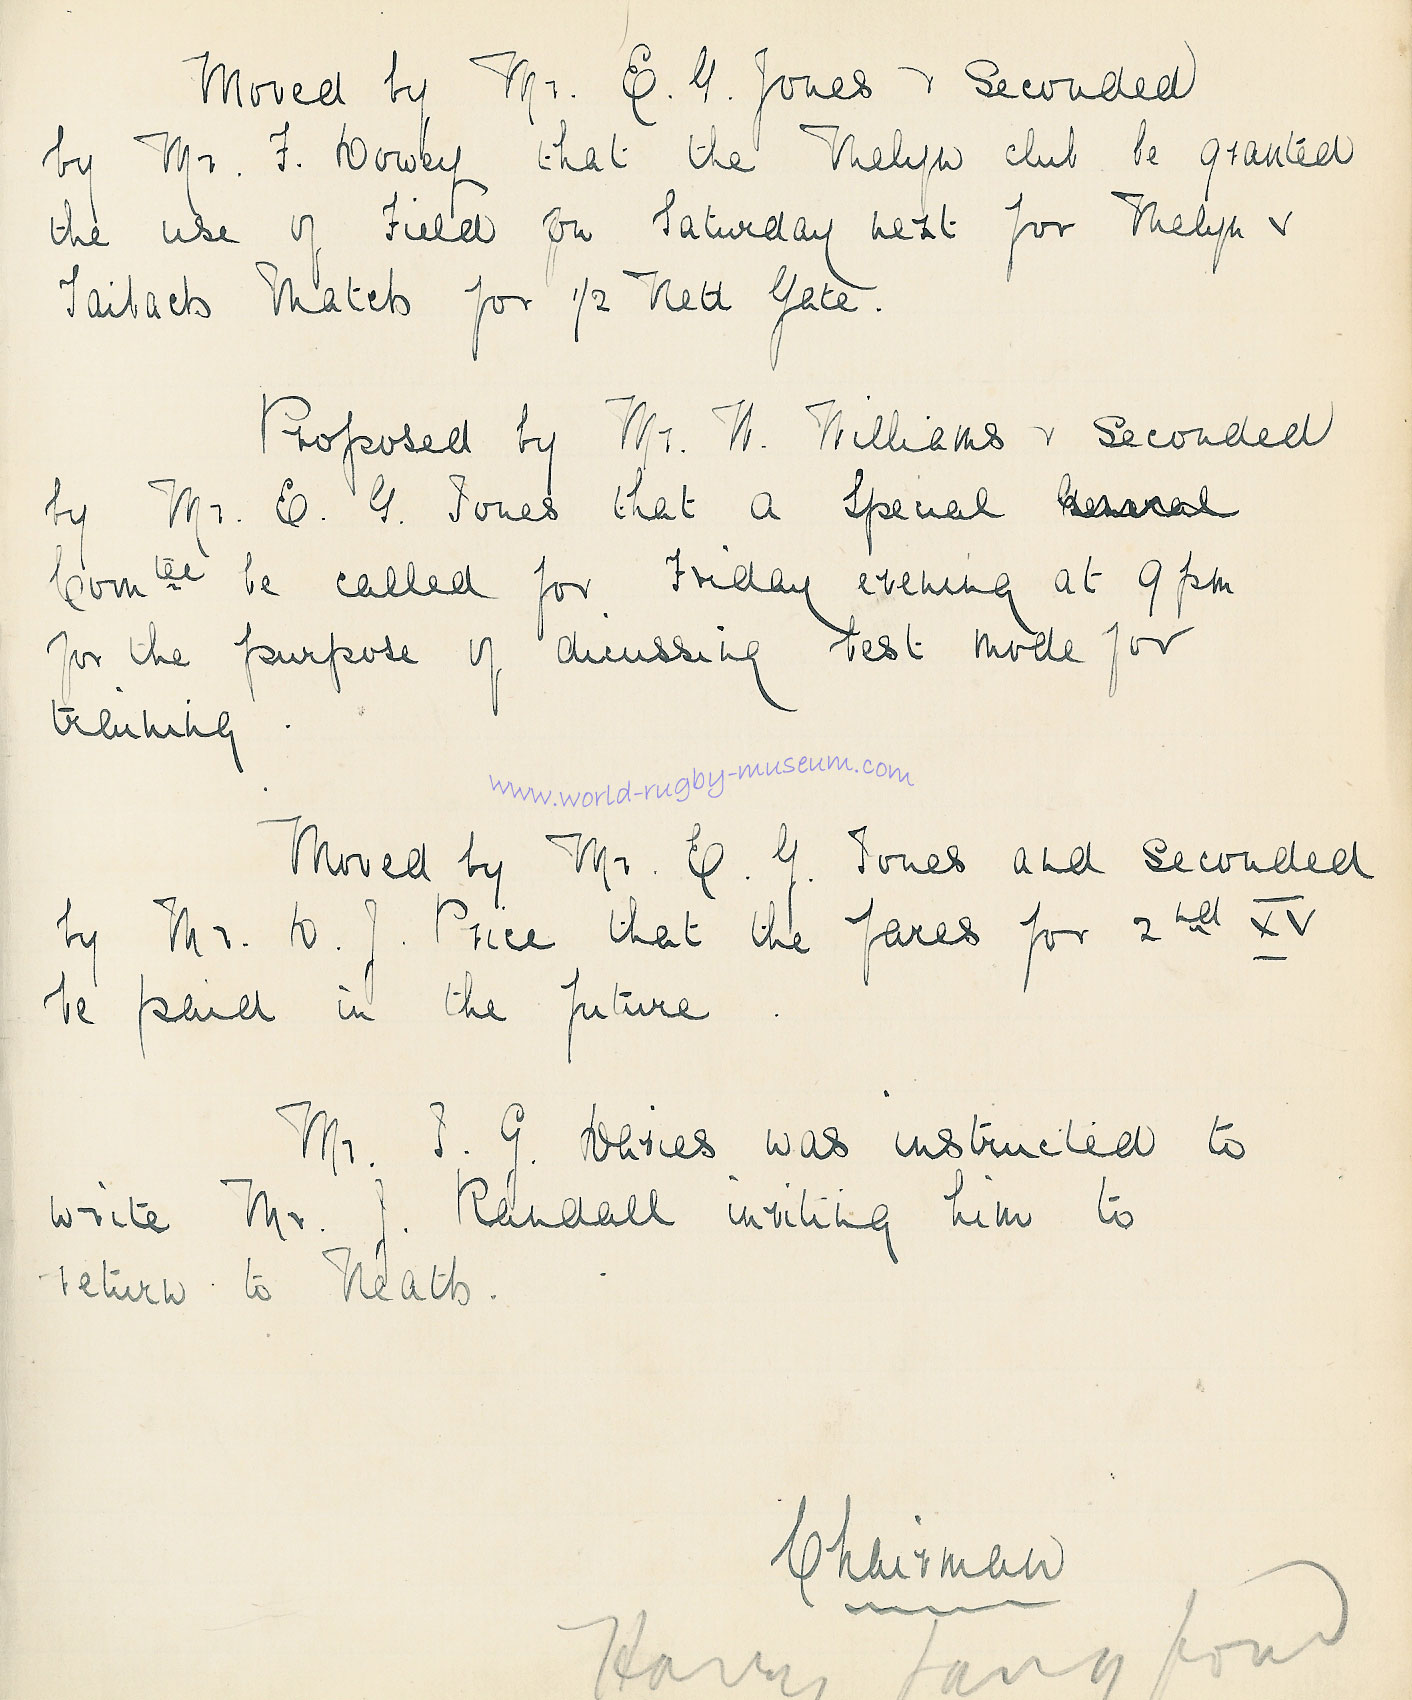 Moved by Mr. E. G. Jones & Seconded
by Mr. F. Dowey that the Melyn club be granted
the use of Field on Saturday next for Melyn &
Taibach Match for 1/2 Nett Gate.
Proposed by Mr. W. Williams & Seconded
by Mr. E. G. Jones that a Special General
Comtee be called for Friday evening at 9 pm
for the purpose of dicussing best mode for
training.
www.world-rugby-museum.com
Moved by Mr. E. G. Jones and Seconded
by Mr. D. J. Price that the fares for 2nd XV
be paid in the future.
Mr. T. G. Davies was instructed to
write Mr. J. Randall inviting him to
return to Neath.
Chairman
Harry Langford